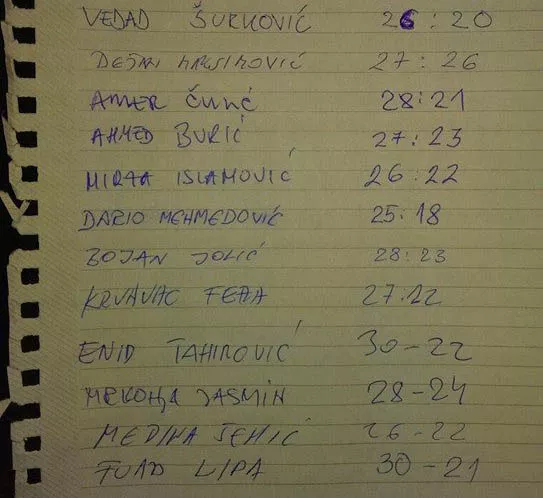 VEDAD ŠURKOVIĆ 26:20
DEJAN 27:26
AMER ČUNIĆ 28:21
AHMED BURIĆ 27:23
MIRZA ISLAMOVIĆ 26:22
DARIO MEHMEDOVIĆ 25:18
BOJAN JOLIĆ 28:23
KRVAVAC FEĐA 27:22
ENID TAHIROVIĆ 30-22
MEKONJA JASMIN 28-24
MEDIHA JEHIĆ 26-22
FUAD LIPA 30-21